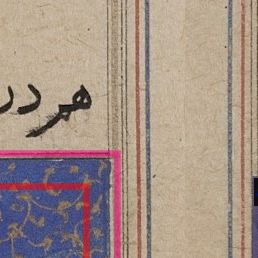 هر در